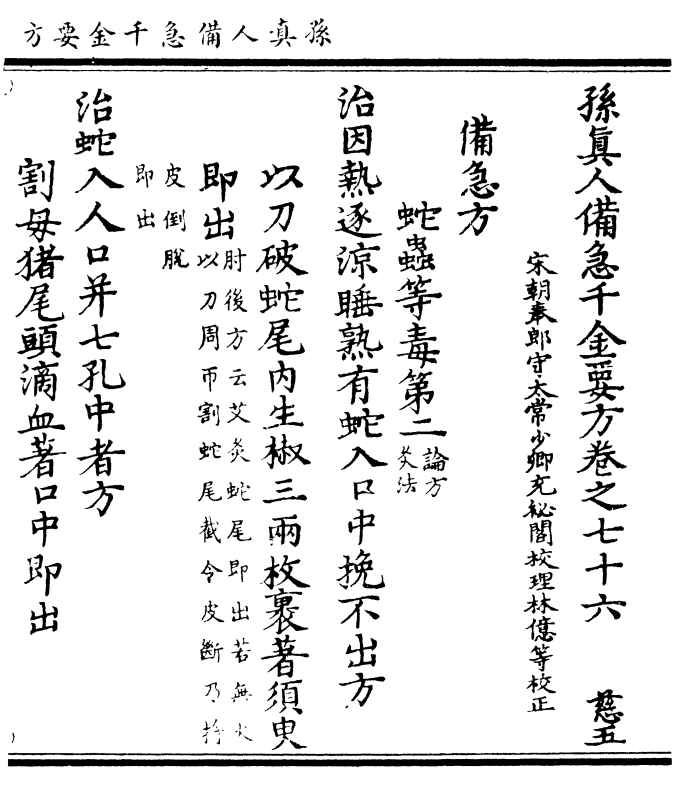 孫真人備急千金要方
孫真人備急千金要方卷之七十六 慈五
宋朝奉郎守太常少卿充祕閣校理林億等校正
備急方
蛇蟲等毒第二 論方 灸法
治因熱逐涼睡熟有蛇入口中挽不出方
以刀破蛇尾內生椒三兩枚裹著須臾
即出 肘後方云艾灸蛇尾即出若無火
以刀周帀割蛇尾截令皮斷乃捋
皮倒脫
即出
治蛇入人口并七孔中者方
割母猪尾頭滴血著口中即出